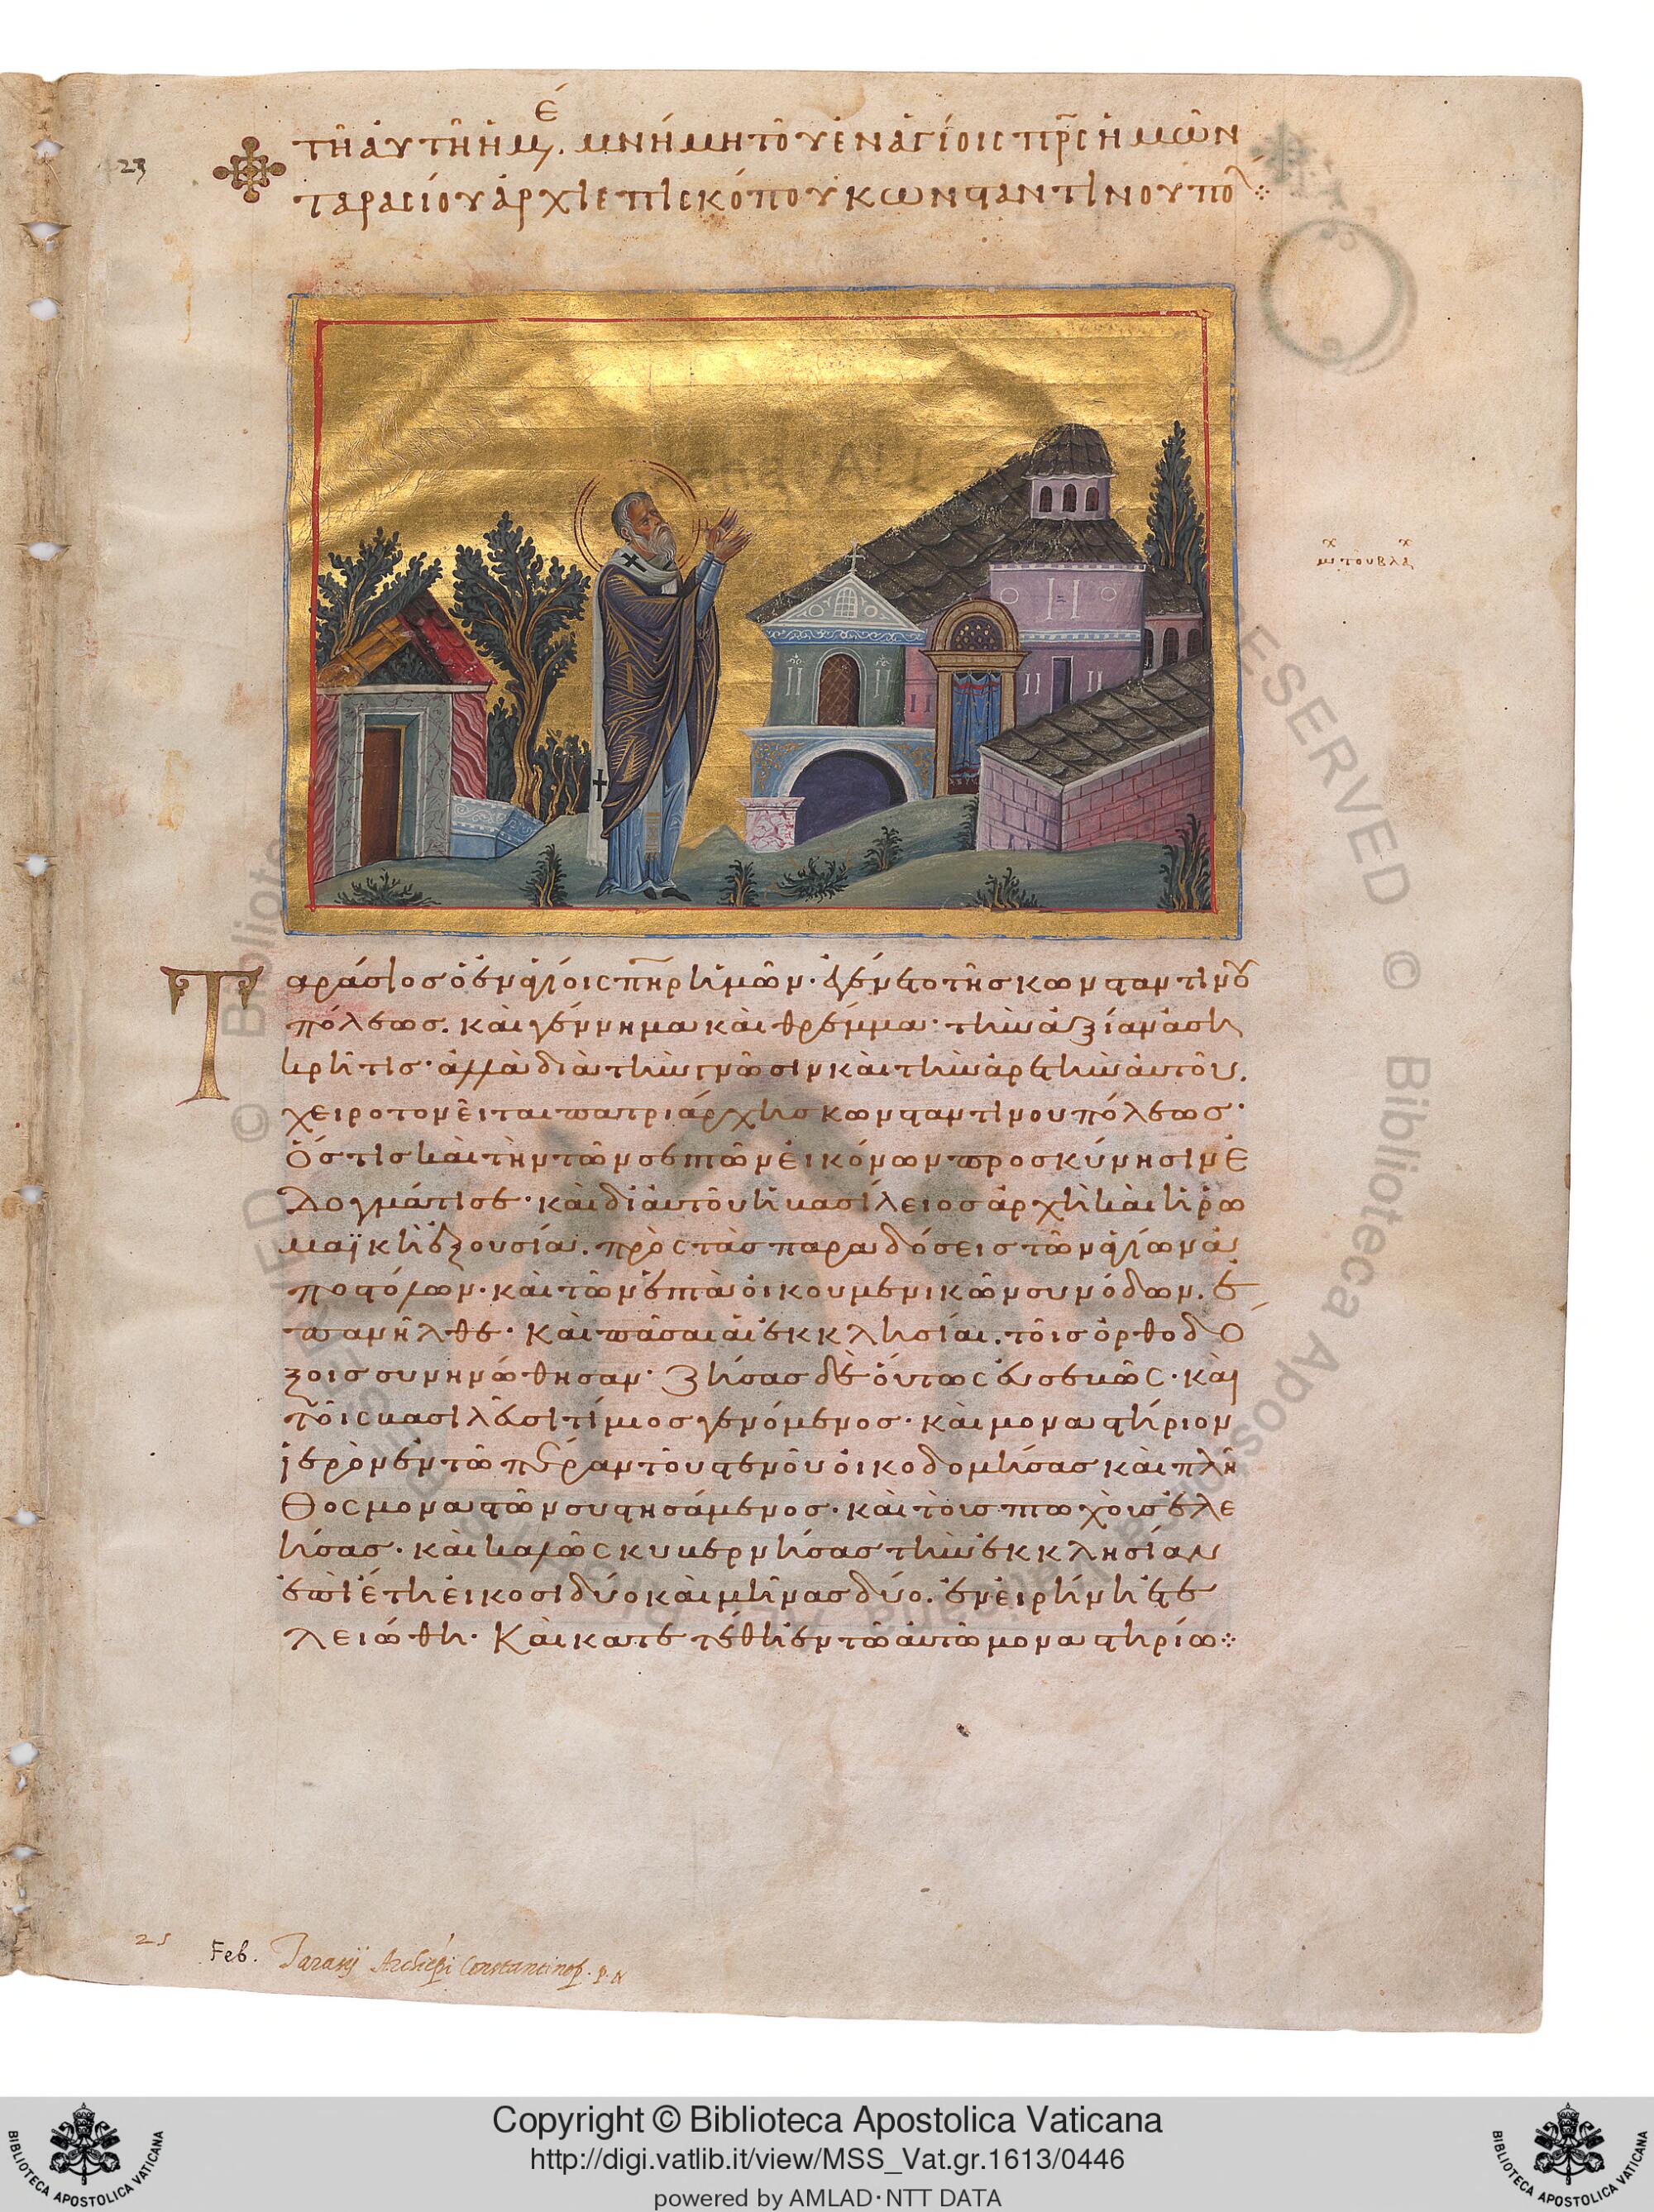 23
τῆ αὐτῆ ἡμέ. μνήμη τοῦ ἐν ἁγίοις πρς ἡμῶν
ταρασίου ἀρχιεπισκόπου κωνσταντινουπολ
Ταράσιος ὁ ἐν ἁγίοις πηρ ἡμῶν· ἐγένετο τῆς κωνσταντίνου
πόλεως. καὶ γέννημα καὶ θρέμμα· τὴν ἀξίαν ἀση
κρῆτις· ἀλλὰ διὰ τὴν γνῶσιν καὶ τὴν ἀρετὴν αὐτοῦ.
χειροτονεῖται πατριάρχης κωνσταντινουπόλεως·
ὅστις καὶ τὴν τῶν σεπτῶν εἰκόνων προσκύνησιν ἐ
δογμάτισε· καὶ δι αὐτοῦ ἡ βασίλειος ἀρχὴ καὶ ἡ ῥω
μαϊκὴ ἐξουσία. πρὸς τὰς παραδόσεις τῶν ἁγίων ἀ
ποστόλων· καὶ τῶν ἑπτὰ οἰκουμενικῶν συνόδων. ἐ
πανῆλθε· καὶ πᾶσαι αἱ ἐκκλησίαι. τοῖς ὀρθοδό
ξοις συνηνώθησαν· ζήσας δὲ οὕτως εὐσεβῶς· καὶ
τοῖς βασιλεῦσι τίμιος γενόμενος· καὶ μοναστήριον
ἱερὸν ἐν τῶ πέραν τοῦ στενοῦ οἰκοδομήσας καὶ πλῆ
θος μοναστῶν συστησάμενος· καὶ τοῖς πτωχοῖς ἐλε
ήσας· καὶ καλῶς κυβερνήσας τὴν ἐκκλησίαν
ἐπὶ ἔτη εἰκοσιδύο καὶ μῆνας δύο. ἐν εἰρήνη ἐτε
λειώθη· Καὶ κατετέθη ἐν τῶ αὐτῶ μοναστηρίω
25 Feb. Tarasij Archiepi Constantinop. P. N
Copyright © Biblioteca Apostolica Vaticana
http://digi.vatlib.it/view/MSS_Vat.gr.1613/0446
powered by AMLAD·NTT DATA
BIBLIOTECA APOSTOLICA VATICANA
BIBLIOTECA APOSTOLICA VATICANA